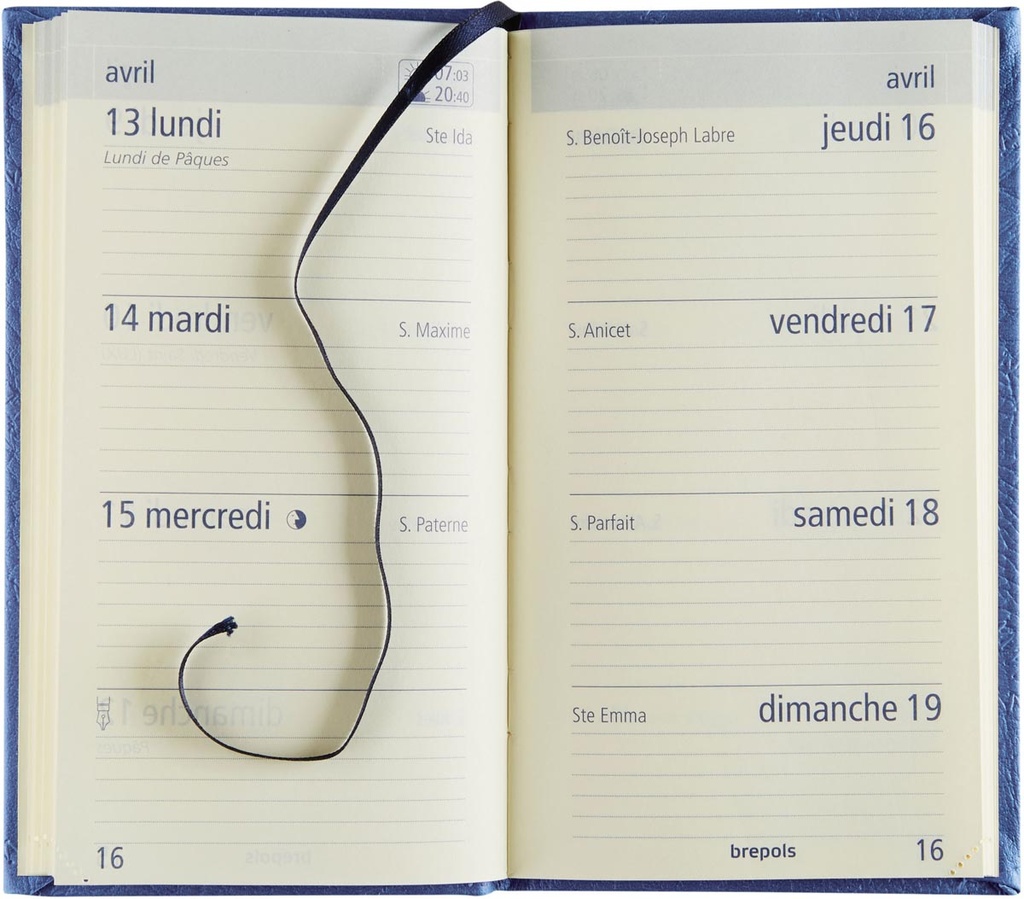 avril
07:03
20:40
13 lundi
Ste Ida
Lundi de Pâques
14 mardi
S. Maxime
15 mercredi
S. Paterne
16
avril
S. Benoît-Joseph Labre
jeudi 16
S. Anicet
vendredi 17
S. Parfait
samedi 18
Ste Emma
dimanche 19
brepols
16